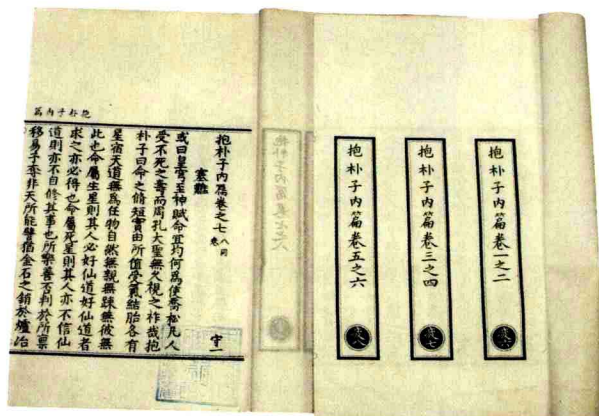 抱朴子内篇卷一之二
疲六
抱朴子内篇卷三之四
疲七
抱朴子内篇卷五之六
疲八
抱朴子内篇卷之七 八同卷 守一
塞難
或曰皇穹至神賦命宜均何為使喬松凡人
受不死之壽而周孔大聖無久視之祚哉抱
朴子曰命之脩短實由所值受氣結胎各有
星宿天道無為任物自然無親無疎無彼無
此也命屬生星則其人必好仙道好仙道者
求之亦必得也命屬死星則其人亦不信仙
道則亦不自修其事也所樂善否判於所稟
移易予奪非天所能譬猶金石之銷於爐冶
抱朴子内篇